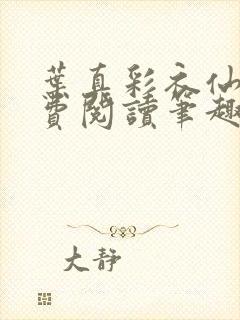 葉真彩衣仙
費閱讀筆趣
大靜